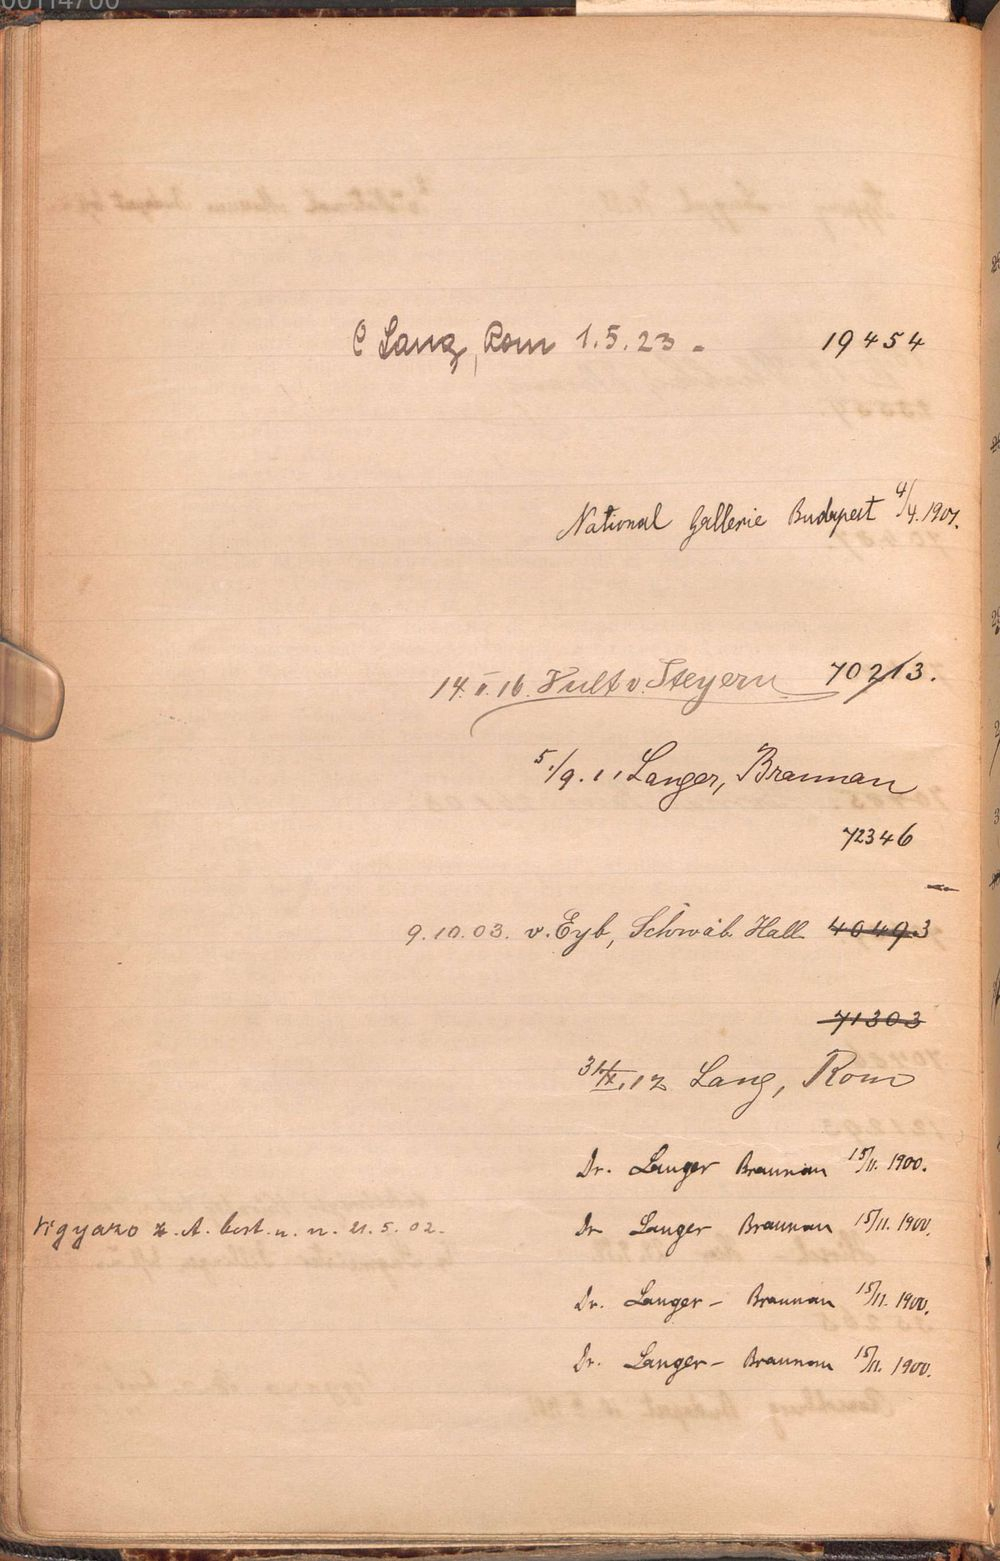 00114700
C Lang, Rom 1.5.23 - 19454
National Gallerie Budapest 4/4. 1901.
14. V. 16. Hult v. Steyern 70213.
5./9. 11 Langer, Braunau
72346
9.10.03. v. Eyb, Schwäb. Hall 40493
71303
31/X.12 Lang, Rom
Dr. Langer Braunau 15/11. 1900.
Vigyazo z. A. best. u. n. 21.5.02.
Dr Langer Braunau 15/11. 1900.
Dr. Langer - Braunau 15/11. 1900.
Dr. Langer - Braunau 15/11. 1900.